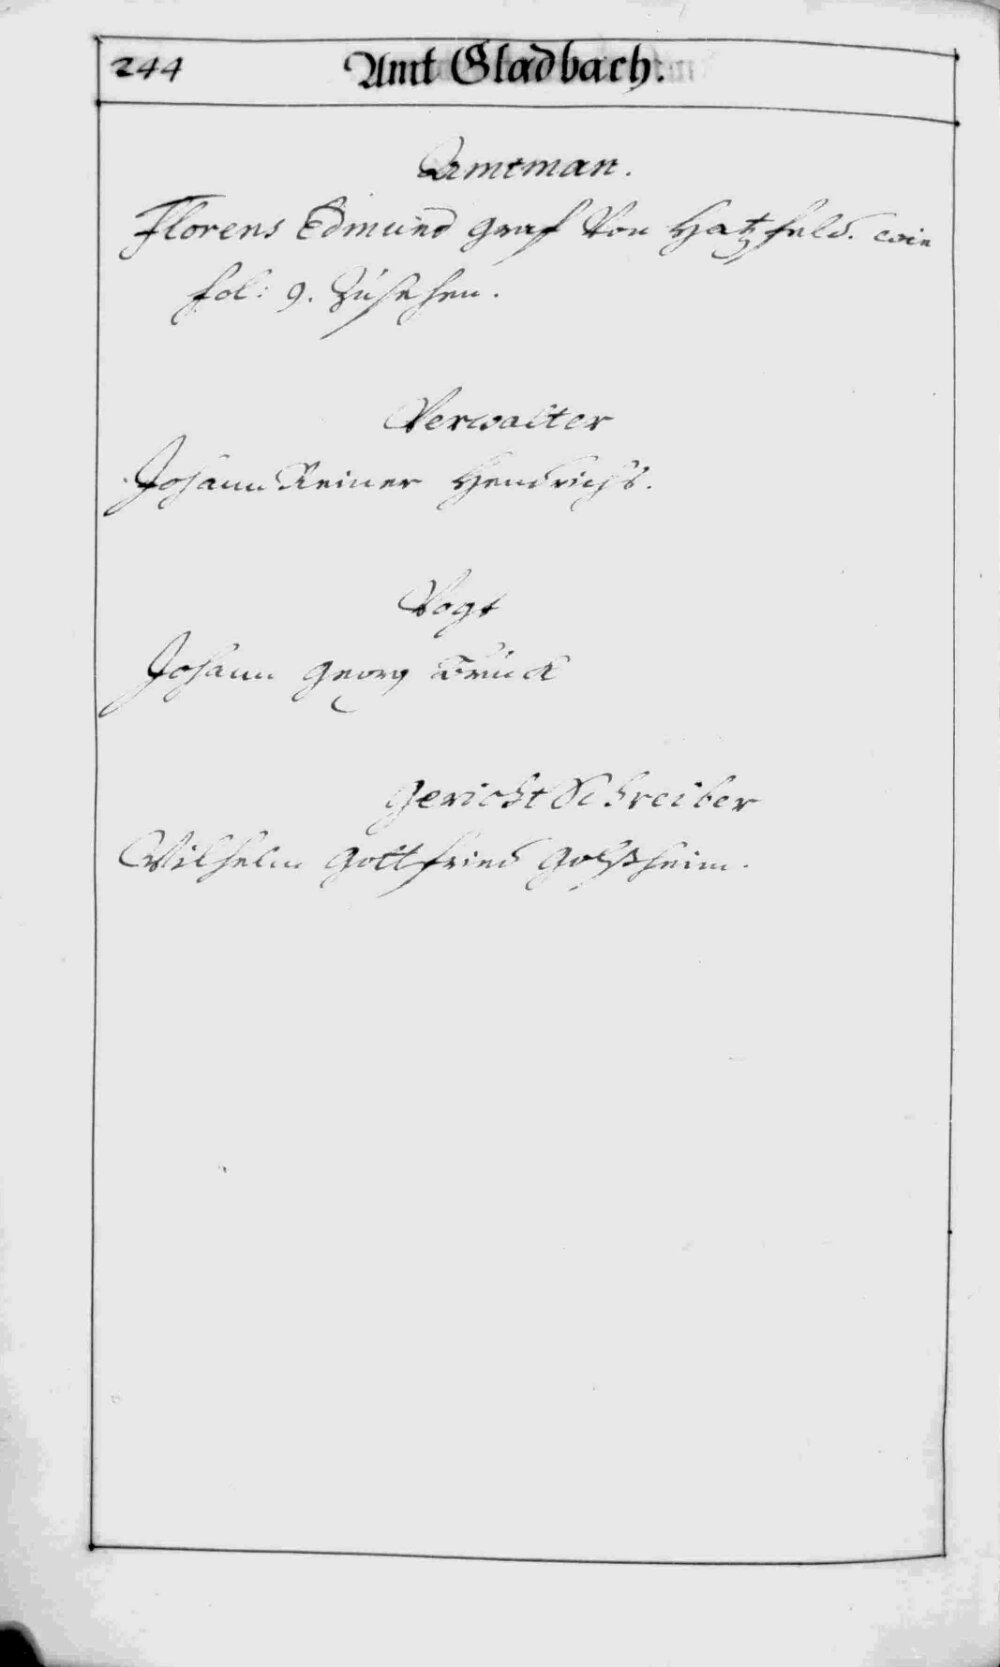 244 Amt Gladbach.
Ambtman.
Florens Edmund graf Von Hatzfeld. wie
fol: 9. Zúsehen.
Verwalter
Johann Reiner Hendrichs.
Vogt
Johann Georg
Gericht Schreiber
Wilhelm Gottfried